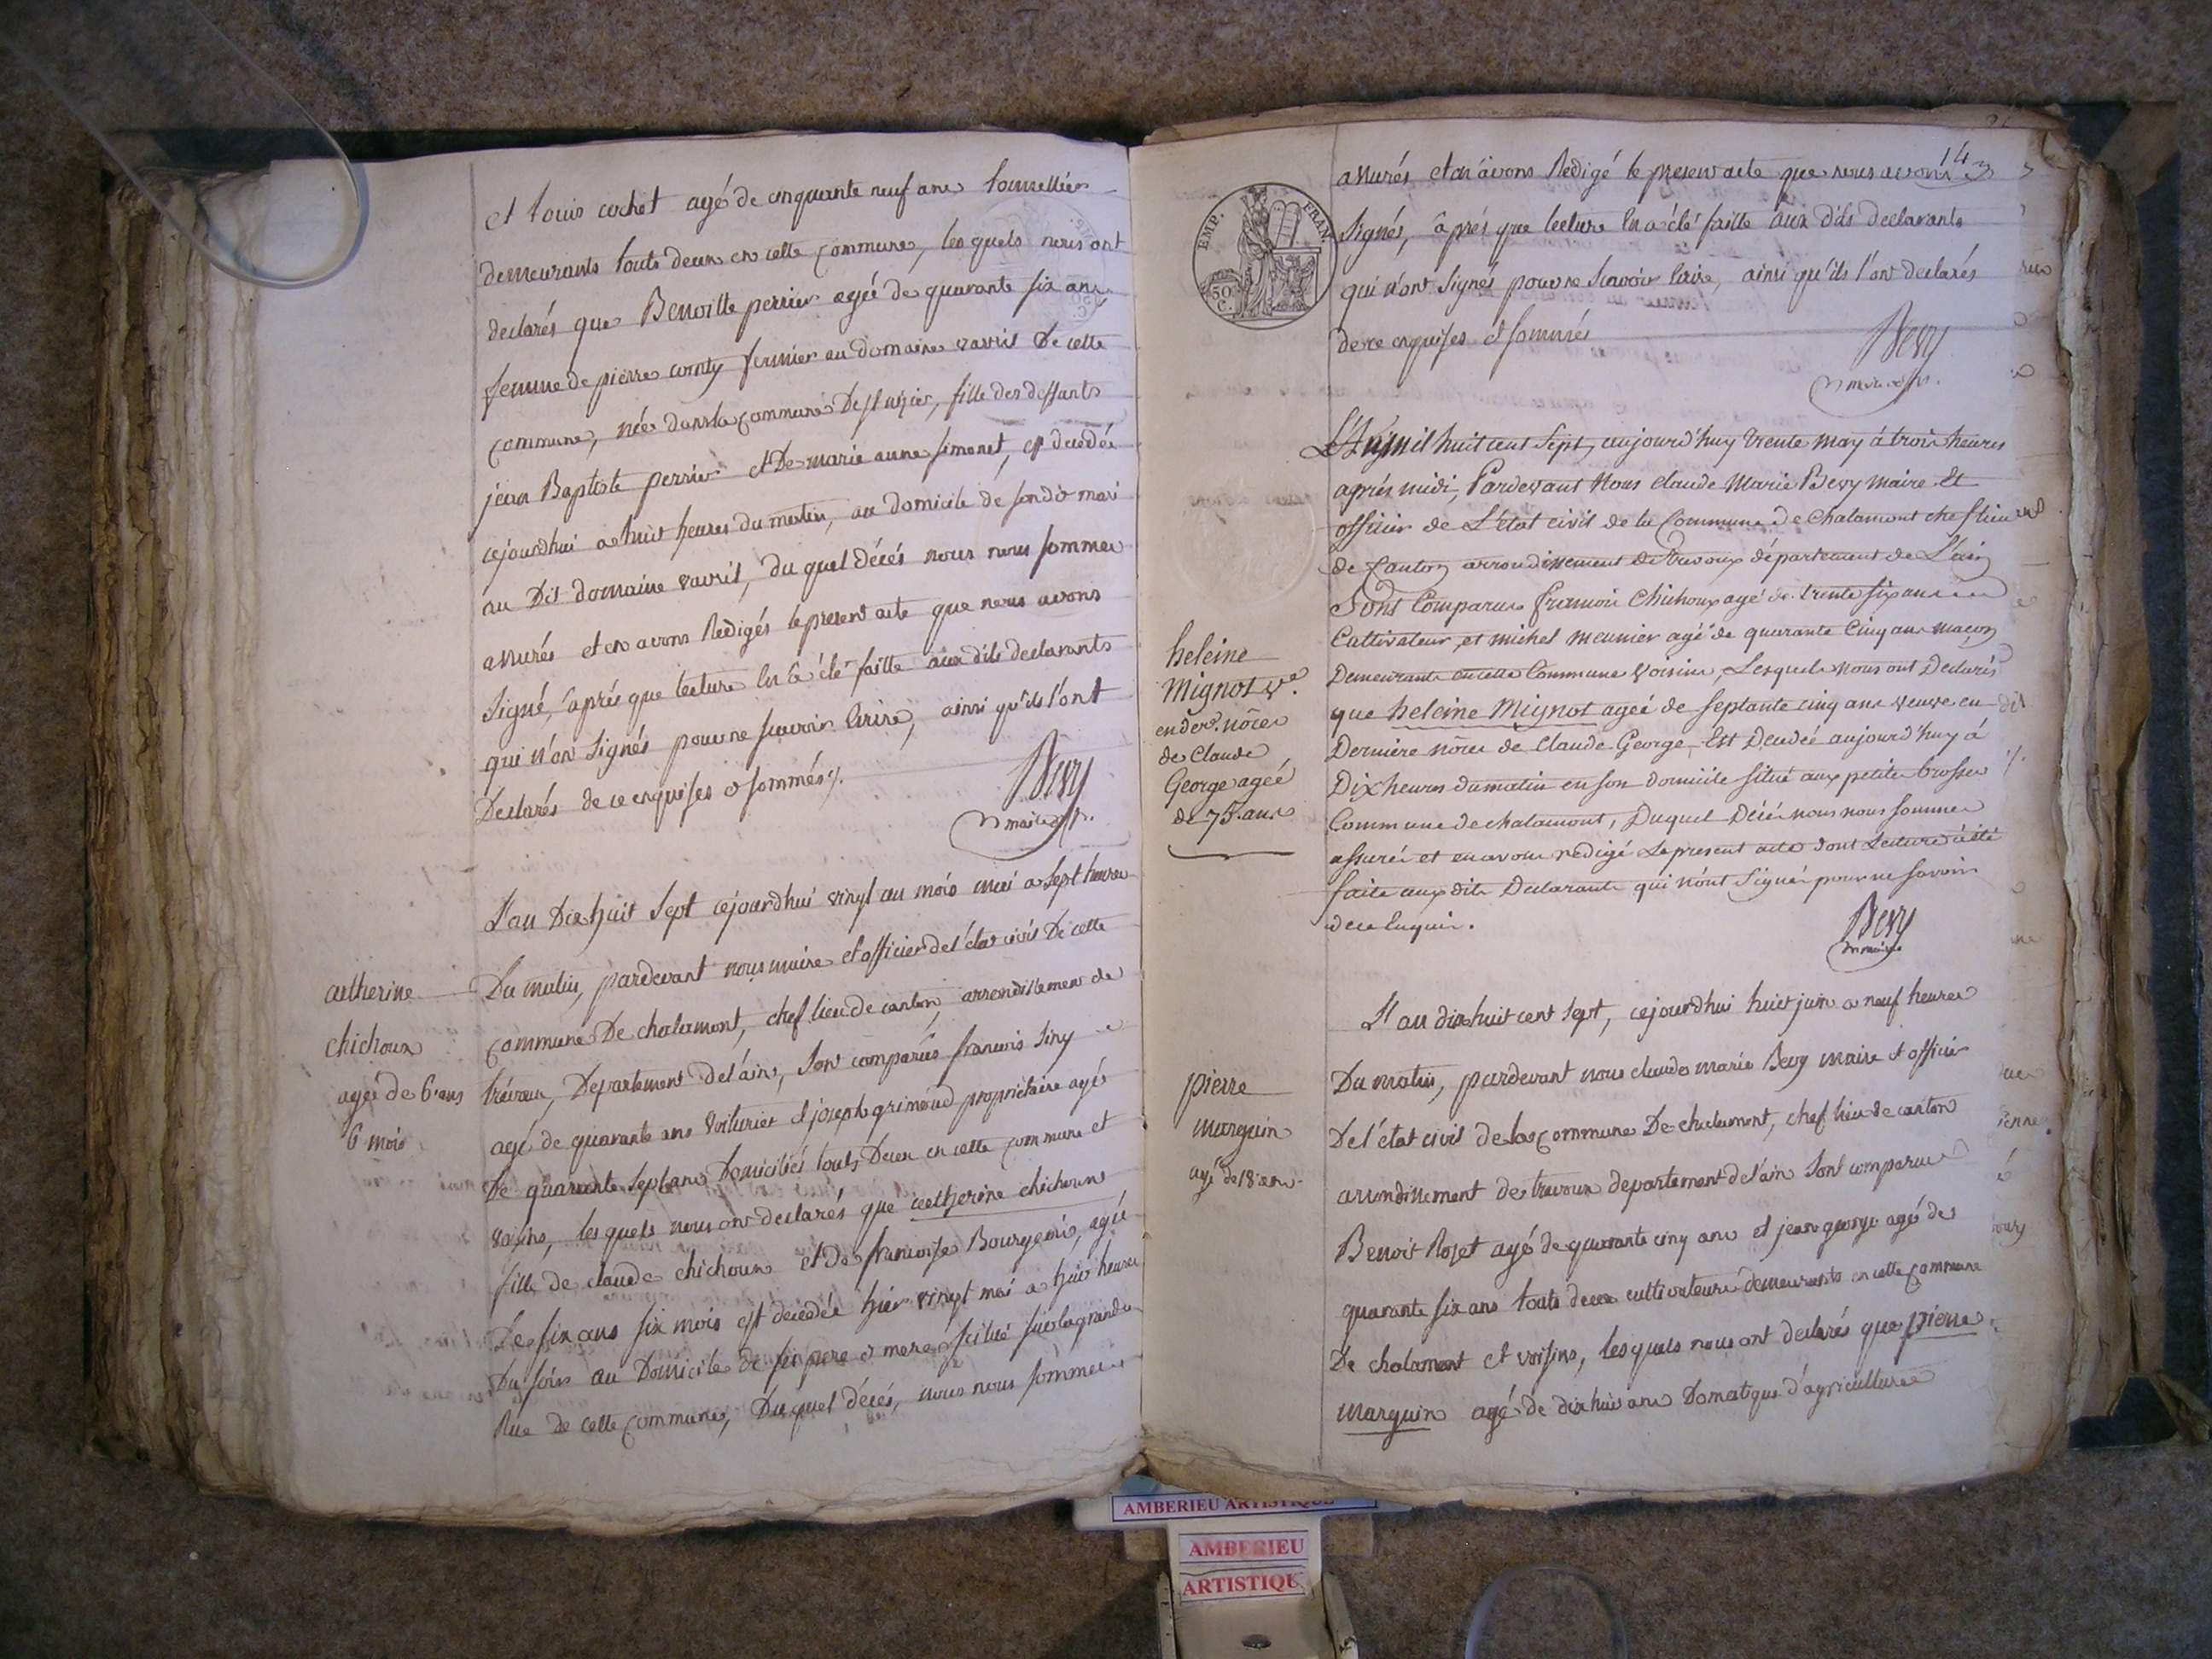 et louis cochet agé de cinquante neuf ans tonnellier
demeurants touts deux en cette commune, les quels nous ont
declarés que Benoitte perrier ageé de quarante six ans
femme de pierre fermier au domaine vavril De cette
commune, née dans la commune De, fille des deffunts
jean Baptiste perrier et De marie anne simonet, est decedée
cejourdhui a huit heures du matin, au domicile de son dit mari
au Dit domaine vavril, du quel décés nous nous sommes
assurés et en avons Redigés le present acte que nous avons
Signé, aprés que lecture en a été faitte aux dits declarants
qui n'ont Signés pour ne scavoir Ecrire, ainsi qu'ils l'ont
Declarés de ce enquises et sommés ./.
Bevy
maire
L'au Dix huit Sept cejourdhui vingt un mois mai a sept heures
Du matin, pardevant nous maire et officier de l'état civil De cette
commune De chalamont, chef lieu de canton, arrondissement de
trévoux, Departement de l'ain, Sont comparus francois Siny
agé de quarante ans voiturier et joseph grimaud propriétaire agé
De quarante sept ans Domiciliés touts Deux en cette commune et
voisins, les quels nous ont declarés que catherine chichoux
fille de claude chichoux et De francoise Bourgeois, ageé
De six ans six mois est decedée hier vingt mai a huit heures
Du soir au Domicile de ses pere et mere scitué sur la grande
Rue de cette commune, Du quel décés, nous nous sommes
catherine
chichoux
ageé de 6 ans
6 mois
143
EMP. FRAN.
50 C.
assurés et en avons Redigé le present acte que nous avons
Signés, aprés que lecture en a été faitte aux dits declarants
qui n'ont Signés pour ne Scavoir Ecrire, ainsi qu'ils l'ont declarés
de ce enquises et sommés
Bevy
maire
L'An mil huit cent Sept, aujourd'huy trente may à trois heures
aprés midi, Pardevant Nous Claude Marie Bevy Maire Et
officier de L'état civil de la Commune de Chalamont chef lieu
de Canton arrondissement de trevoux département de L'ain
Sont Comparus francois Chichoux agé de trente six ans
Cultivateur, et michel meunier agé de quarante Cinq ans maçon
Demeurants en cette Commune voisins, Lesquels Nous ont Declarés
que heleine Mignot ageé de septante cinq ans veuve en
Derniere nôces de Claude George, Est Decedeé aujourd'huy á
Dix heures du matin en son domicile situé aux petites brosses
Commune de chalamont, Duquel Décés nous nous sommes
assurés et en avons redigé Le present acte dont Lecture a été
faite aux dits Declarants qui n'ont Signés pour ne savoir
de ce Enquis.
Bevy
maire
heleine
Mignot ve.
en der. nôces
de Claude
George ageé
de 75. ans
L'an dix huit cent sept, cejourdhui huit juin a neuf heures
Du matin, pardevant nous claude marie Bevy maire et officier
De l'état civil de la commune De chalamont, chef lieu de canton
arrondissement de trevoux departement de l'ain Sont comparus
Benoit Rozet agé de quarante cinq ans et jean george agé de
quarante six ans touts deux cultivateurs demeurants en cette commune
De chalamont et voisins, les quels nous ont declarés que pierre
marguin agé de dix huit ans Domestique d'agriculture
pierre
marguin
agé de 18 ans
AMBERIEU ARTISTIQUE
AMBERIEU
ARTISTIQU